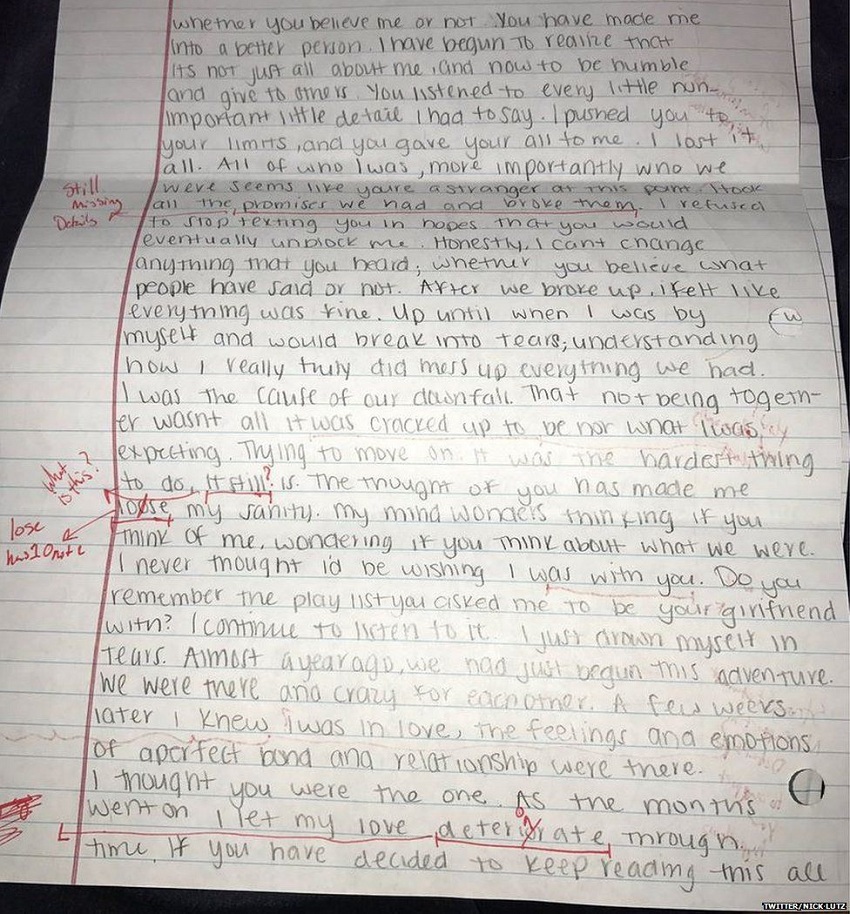 whether you believe me or not. You have made me
into a better person. I have begun to realize that
its not just all about me, and now to be humble
and give to others. You listened to every little nun-
important little detail I had to say. I pushed you to
your limits, and you gave your all to me. I lost it
all. All of who I was, more importantly who we
Still
Missing
Details
were seems, like youre a stranger at this point. I took
all the promises we had and broke them. I refused
to stop texting you in hopes that you would
eventually unblock me. Honestly, I cant change
anything that you heard, whether you believe what
people have said or not. After we broke up, I felt like
everything was fine. Up until when I was by
myself and would break into tears, understanding
how I really truly did mess up everything we had.
I was the cause of our downfall. That not being togeth-
er wasnt all it was cracked up to be nor what I was
expecting. Trying to move on. It was the hardest thing
What is this?
to do, it still? is. The thought of you has made me
loose my sanity. my mind wonders thinking if you
lose
has 1 O not 2
think of me, wondering if you think about what we were.
I never thought id be wishing I was with you. Do you
remember the play list you asked me to be your girlfriend
with? I continue to listen to it. I just drown myself in
tears. Almost a year ago, we had just begun this adventure.
We were there and crazy for each other. A few weeks
later I knew I was in love, the feelings and emotions
of a perfect bond and relationship were there.
I thought you were the one. As the months
went on I let my love deteriorate through
time. If you have decided to keep reading this all
TWITTER/NICK LUTZ